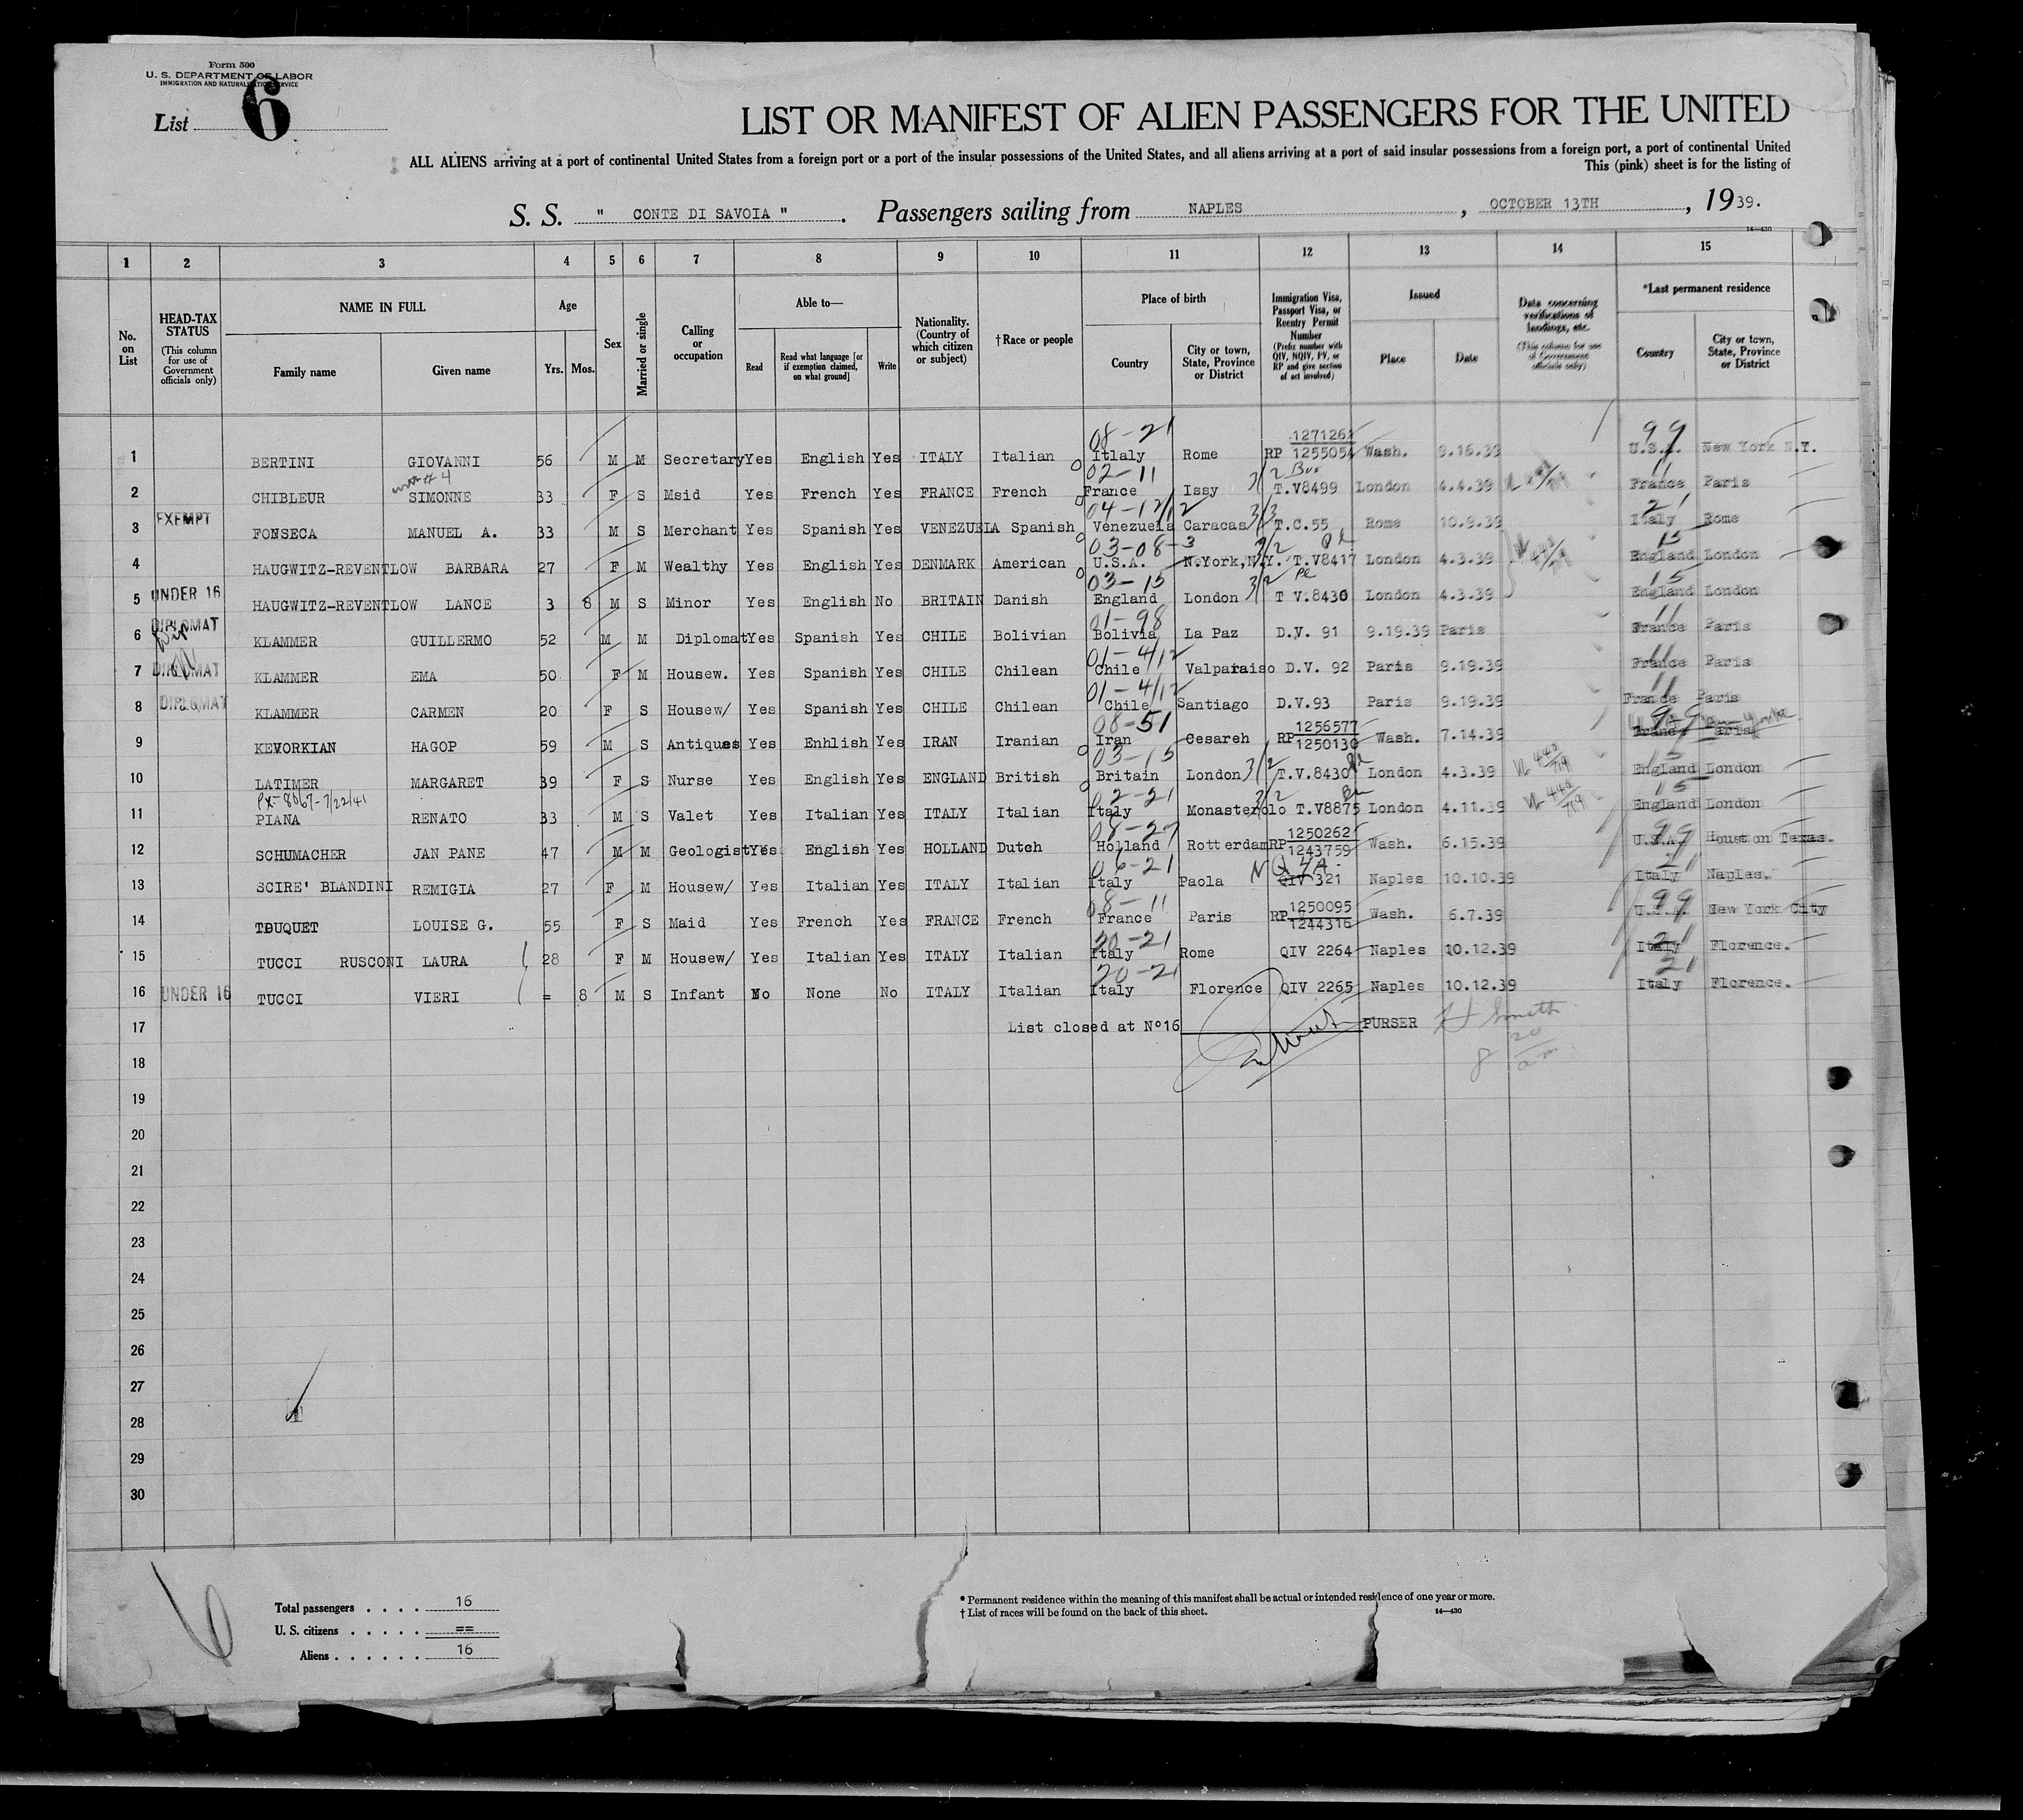 Form 500
U. S. DEPARTMENT OF LABOR
IMMIGRATION AND NATURALIZATION SERVICE
List 6
LIST OR MANIFEST OF ALIEN PASSENGERS FOR THE UNITED
ALL ALIENS arriving at a port of continental United States from a foreign port or a port of the insular possessions of the United States, and all aliens arriving at a port of said insular possessions from a foreign port, a port of continental United
This (pink) sheet is for the listing of
S. S. " CONTE DI SAVOIA ". Passengers sailing from NAPLES, OCTOBER 13TH, 1939.
14—430
1 2 3 4 5 6 7 8 9 10 11 12 13 14 15
No. on List
HEAD-TAX STATUS (This column for use of Government officials only)
NAME IN FULL
Family name Given name
Age
Yrs. Mos.
Sex
Married or single
Calling or occupation
Able to—
Read Read what language [or if exemption claimed, on what ground] Write
Nationality. (Country of which citizen or subject)
†Race or people
Place of birth
Country City or town, State, Province or District
Immigration Visa, Passport Visa, or Reentry Permit Number (Prefix number with QIV, NQIV, PV, or RP and give section of act involved)
Issued
Place Date
Data concerning verifications of landings, etc. (This column for use of Government officials only)
*Last permanent residence
Country City or town, State, Province or District
08-21 1271261 99
1 BERTINI GIOVANNI 56 M M Secretary Yes English Yes ITALY Italian Itlaly Rome RP 1255054 Wash. 9.16.39 U.S.A. New York N.Y.
02-11 3/2 11
2 CHIBLEUR SIMONNE 33 F S Msid Yes French Yes FRANCE French France Issy T.V8499 London 4.4.39 France Paris
04-12/12 3/3 21
3 EXEMPT FONSECA MANUEL A. 33 M S Merchant Yes Spanish Yes VENEZUELA Spanish Venezuela Caracas T.C.55 Rome 10.9.39 Italy Rome
03-08-3 3/2 15
4 HAUGWITZ-REVENTLOW BARBARA 27 F M Wealthy Yes English Yes DENMARK American U.S.A. N.York,N.Y. T.V8417 London 4.3.39 England London
03-15 3/2 15
5 UNDER 16 HAUGWITZ-REVENTLOW LANCE 3 8 M S Minor Yes English No BRITAIN Danish England London T V.8430 London 4.3.39 England London
01-98 11
6 DIPLOMAT KLAMMER GUILLERMO 52 M M Diplomat Yes Spanish Yes CHILE Bolivian Bolivia La Paz D.V. 91 9.19.39 Paris France Paris
01-4/12 11
7 DIPLOMAT KLAMMER EMA 50 F M Housew. Yes Spanish Yes CHILE Chilean Chile Valparaiso D.V. 92 Paris 9.19.39 France Paris
01-4/12 11
8 DIPLOMAT KLAMMER CARMEN 20 F S Housew/ Yes Spanish Yes CHILE Chilean Chile Santiago D.V.93 Paris 9.19.39 France Paris
08-51 1256577 99
9 KEVORKIAN HAGOP 59 M S Antiques Yes Enhlish Yes IRAN Iranian Iran Cesareh RP 1250130 Wash. 7.14.39 France Paris
03-15 3/2 440/719 15
10 LATIMER MARGARET 39 F S Nurse Yes English Yes ENGLAND British Britain London T.V.8430 London 4.3.39 England London
Px-8067-7/22/41 02-21 3/2 440/719 15
11 PIANA RENATO 33 M S Valet Yes Italian Yes ITALY Italian Italy Monasterolo T.V8875 London 4.11.39 England London
08-27 1250262 99
12 SCHUMACHER JAN PANE 47 M M Geologist Yes English Yes HOLLAND Dutch Holland Rotterdam RP 1243759 Wash. 6.15.39 U.S.A. Houston Texas.
06-21 NQ 4A 21
13 SCIRE' BLANDINI REMIGIA 27 F M Housew/ Yes Italian Yes ITALY Italian Italy Paola QIV 321 Naples 10.10.39 Italy Naples.
08-11 1250095 99
14 TOUQUET LOUISE G. 55 F S Maid Yes French Yes FRANCE French France Paris RP 1244316 Wash. 6.7.39 U.S.A. New York City
20-21 21
15 TUCCI RUSCONI LAURA 28 F M Housew/ Yes Italian Yes ITALY Italian Italy Rome QIV 2264 Naples 10.12.39 Italy Florence.
20-21 21
16 UNDER 16 TUCCI VIERI = 8 M S Infant No None No ITALY Italian Italy Florence QIV 2265 Naples 10.12.39 Italy Florence.
17 List closed at Nº16 PURSER Smith
18 8 20 am
19
20
21
22
23
24
25
26
27
28
29
30
6
Total passengers . . . . 16
U. S. citizens . . . . . ==
Aliens . . . . . . 16
* Permanent residence within the meaning of this manifest shall be actual or intended residence of one year or more.
† List of races will be found on the back of this sheet. 14—430